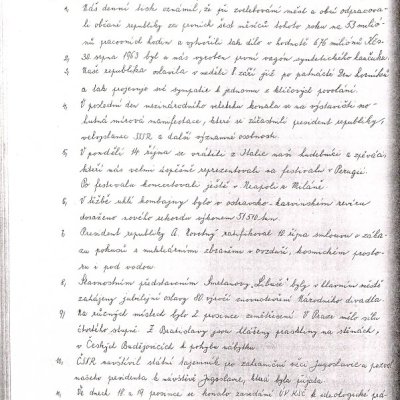 1, Náš denní tisk oznámil, že při zvelebování měst a obcí odpracova-
li občané republiky za prvních šest měsíců tohoto roku na 53 milió-
nů pracovních hodin a vytvořili tak dílo v hodnotě 676 miliónů Kčs.
2, 30. srpna 1963 byl u nás vyroben první vagón syntetického kaučuku.
3, Naše republika slavila v neděli 8. září již po patnácté Den horníků
a tak projevuje své sympatie k jednomu z klíčových povolání.
4, V poslední den mezinárodního veletrhu konala se na výstavišti mo-
hutná mírová manifestace, které se zúčastnili president republiky,
velvyslanec SSSR a další významné osobnosti.
5, V pondělí 14. října se vrátili z Italie naši hudebníci a zpěváci,
kteří nás velmi úspěšně reprezentovali na festivalu v Perugii.
Po festivalu koncertovali ještě v Neapoli a Miláně.
6, V těžbě uhlí kombajny bylo v ostravsko-karvinském revíru
dosaženo nového rekordu výkonem 51 510 tun.
President republiky A. Novotný ratifikoval 10. října smlouvu o záka-
zu pokusů s nukleárními zbraněmi v ovzduší, kosmickém prosto-
ru a pod vodou.
8, Slavnostním představením Smetanovy „Libuše" byly v hlavním městě
zahájeny jubilejní oslavy 80. výročí znovuotevření Národního divadla.
9, Na různých místech bylo 2. prosince zemětřesení. V Praze mělo sílu
čtvrtého stupně. Z Bratislavy jsou hlášeny praskliny na stěnách,
v Českých Budějovicích k pohybu nábytku.
10, ČSSR navštívil státní tajemník pro zahraniční věci Jugoslavie a pozval
našeho presidenta k návštěvě Jugoslavie, která byla přijata.
11, Ve dnech 18. a 19. prosince se konalo zasedání ÚV KSČ k ideologické